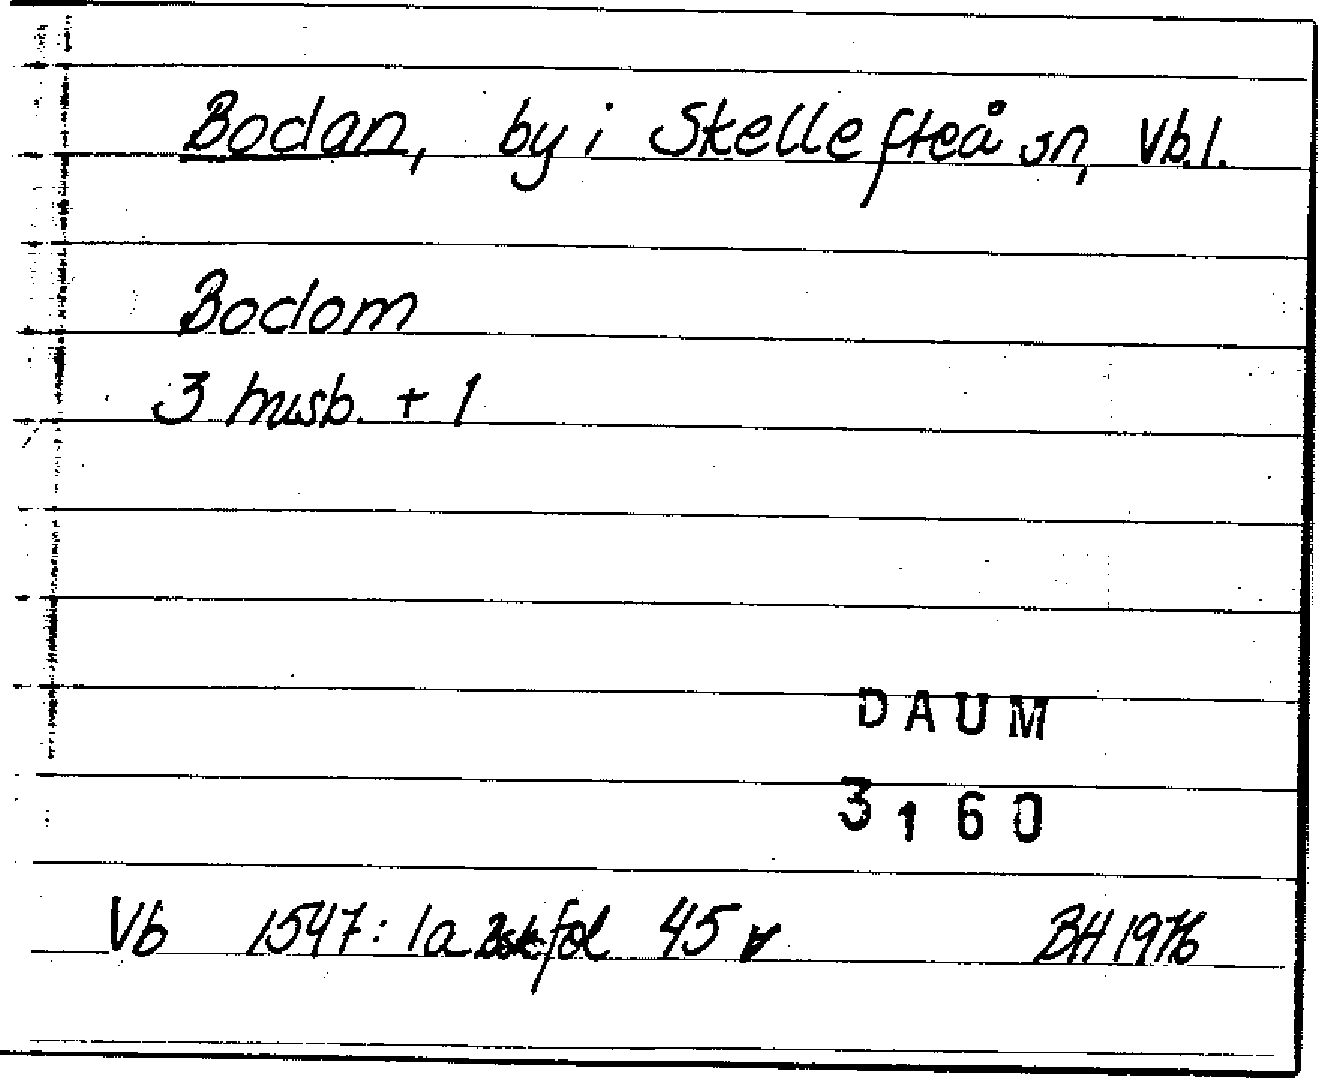 Bodan, by i Skellefteå sn, Vb.l.
Bodom
3 husb. + 1
DAUM
3160
Vb 1547: 1a fol 45 v BH 1976